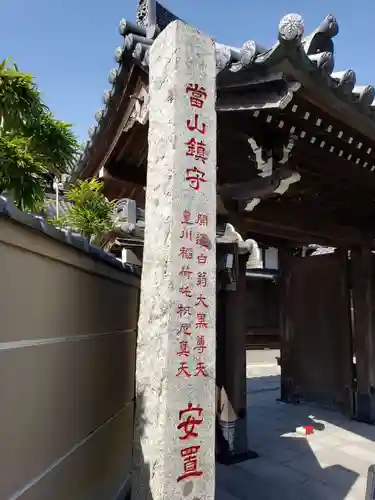 當山鎮守
開運白翁大黒尊天
豊川稲荷吒枳尼真天
安置